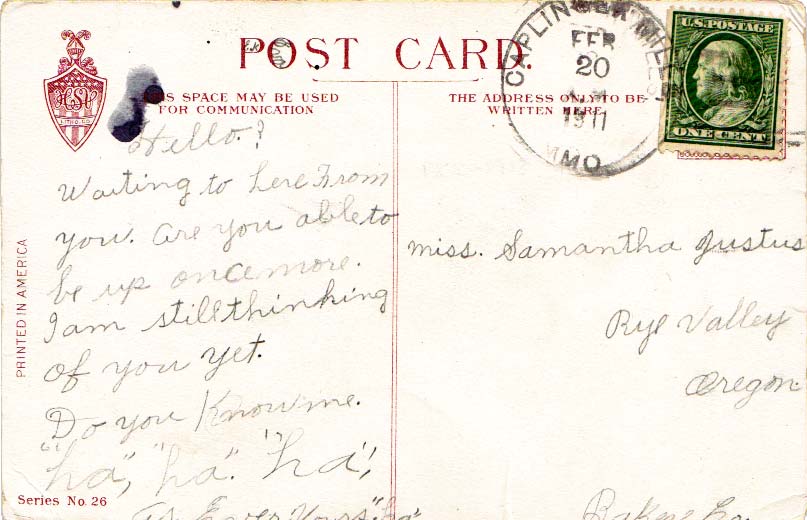 POST CARD.
THIS SPACE MAY BE USED
FOR COMMUNICATION
THE ADDRESS ONLY TO BE
WRITTEN HERE
CAPLINGER MILLS
FEB
20
1911
MO.
U.S. POSTAGE
ONE CENT
HSV
LITHO. CO.
PRINTED IN AMERICA
Hello?
Waiting to here From
you. are you able to
be up once more.
I am still thinking
of you yet.
Do you Know me.
"ha", "ha". "ha",
As Ever Yours
miss. Samantha Justus
Rye Valley
Oregon
Baker Co.
Series No. 26